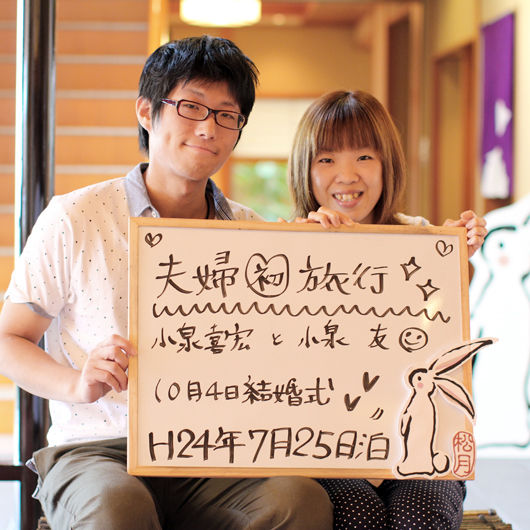 夫婦初旅行
小泉喜宏と小泉 友
10月4日結婚式
H24年7月25日泊
松月